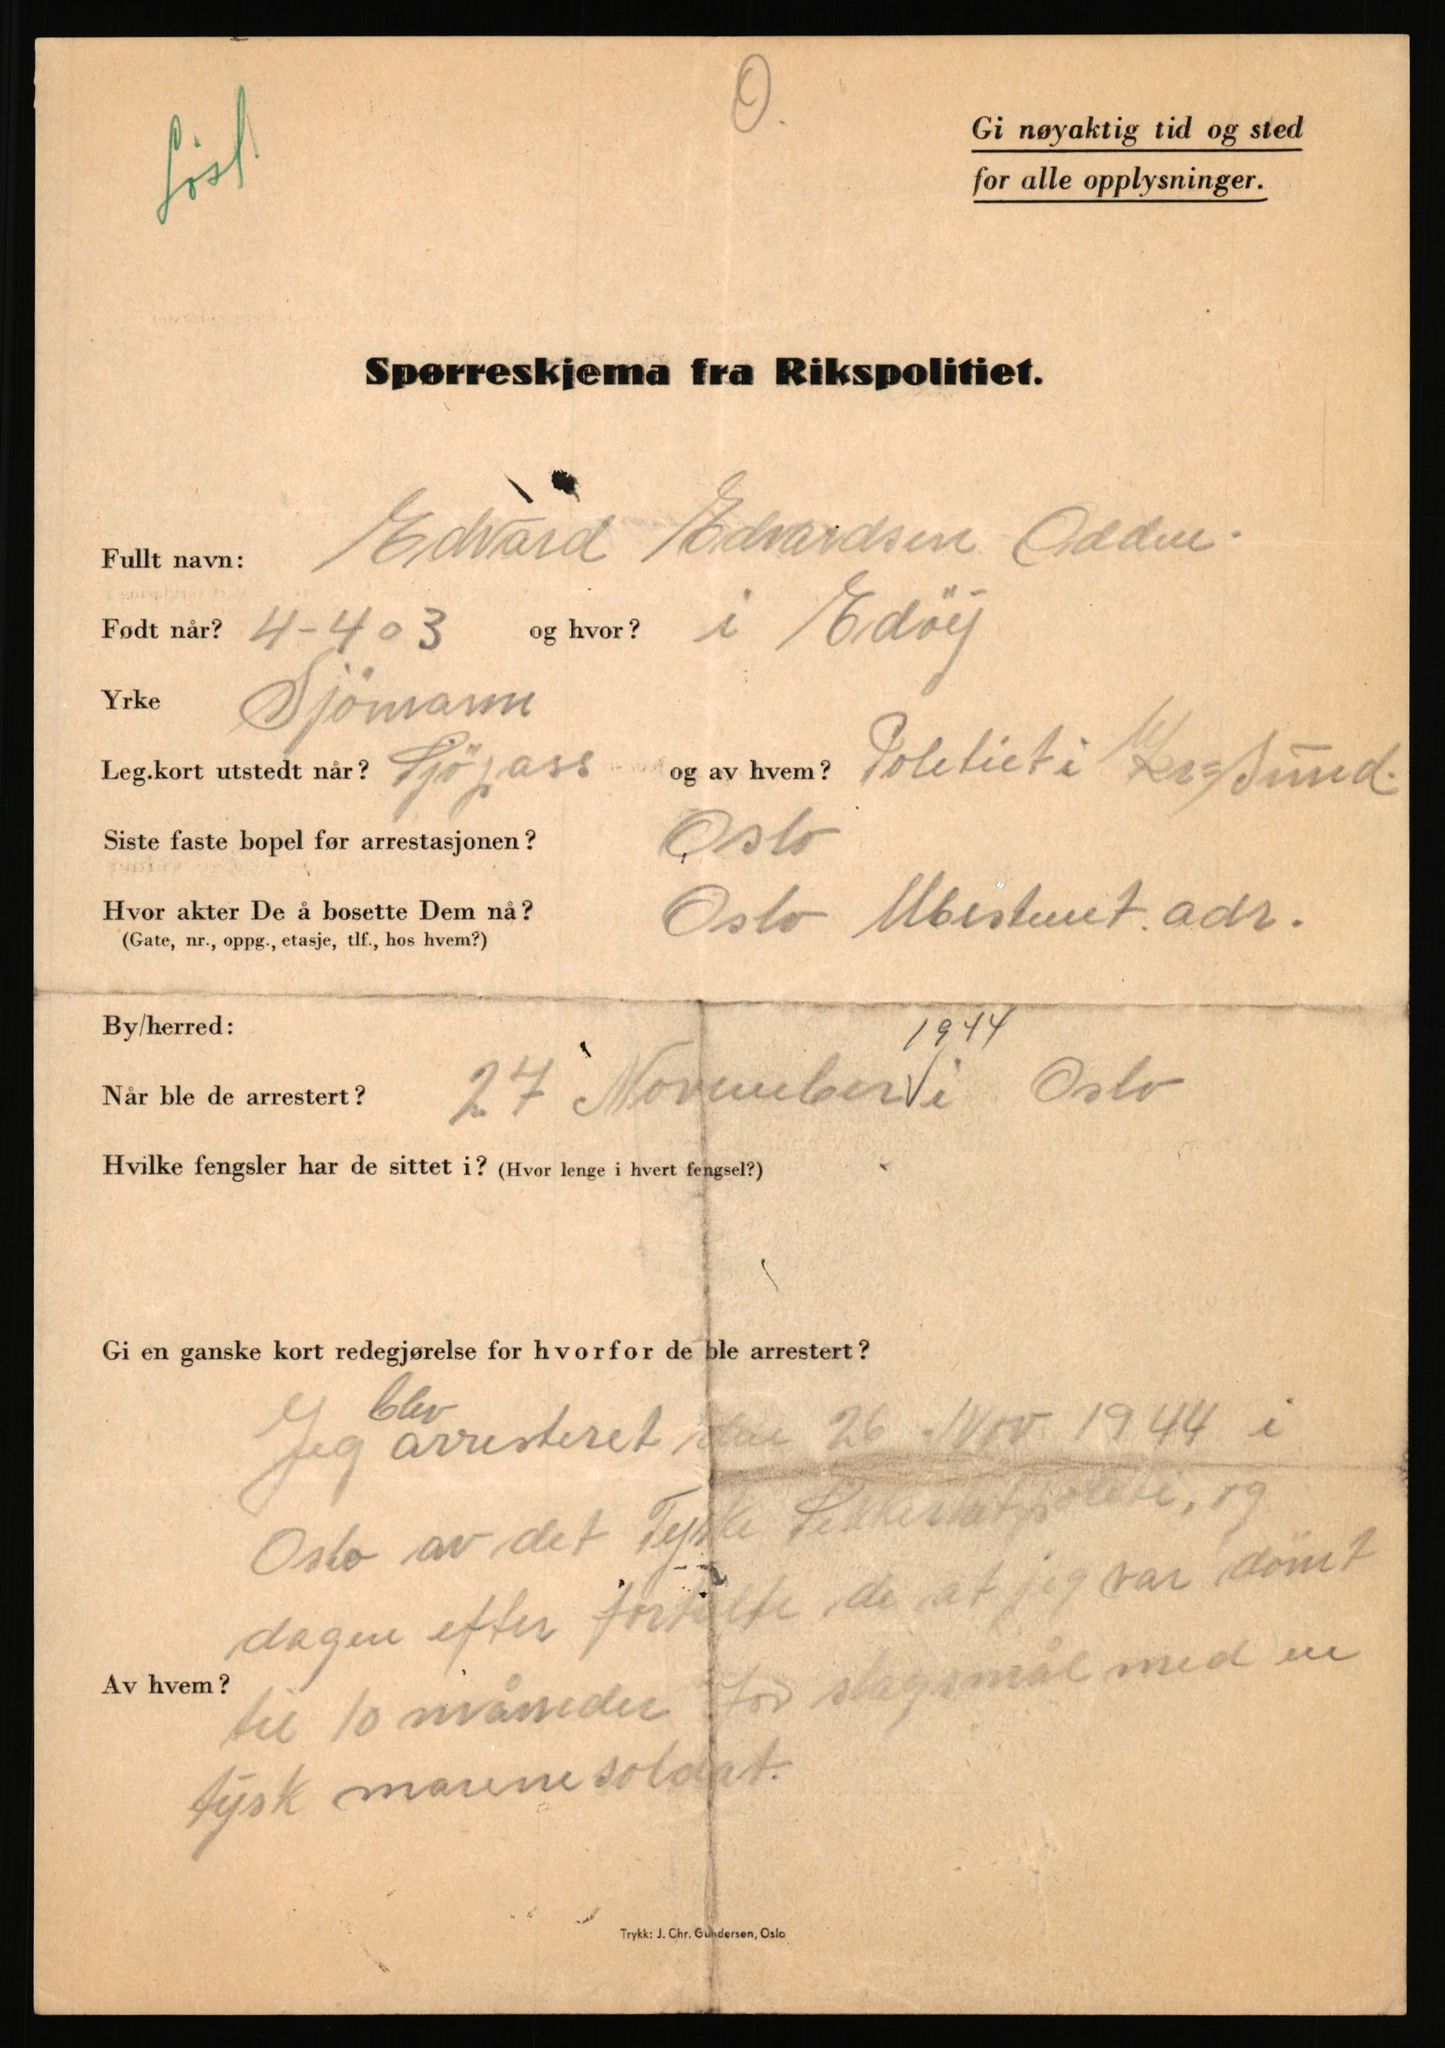 Løsl.
O.
Gi nøyaktig tid og sted
for alle opplysninger.
Spørreskjema fra Rikspolitiet.
Fullt navn: Edvard Edvardsen Odden.
Født når? 4-4 03 og hvor? i Edöy
Yrke Sjömann
Leg.kort utstedt når? Sjöpass og av hvem? Politiet i Kr=Sund.
Siste faste bopel før arrestasjonen? Oslo
Hvor akter De å bosette Dem nå? Oslo Ubestemt. adr.
(Gate, nr., oppg., etasje, tlf., hos hvem?)
By/herred:
1944
Når ble de arrestert? 27 November √ i Oslo
Hvilke fengsler har de sittet i? (Hvor lenge i hvert fengsel?)
Gi en ganske kort redegjørelse for hvorfor de ble arrestert?
blev
Jeg arresteret den 26 Nov 1944 i
Oslo av det Tyske Sikkerhetspoliti, og
dagen efter fortelte de at jeg var dömt
Av hvem?
til 10 måneder for slagsmål med en
tysk marenesoldat.
Trykk: J. Chr. Gundersen, Oslo